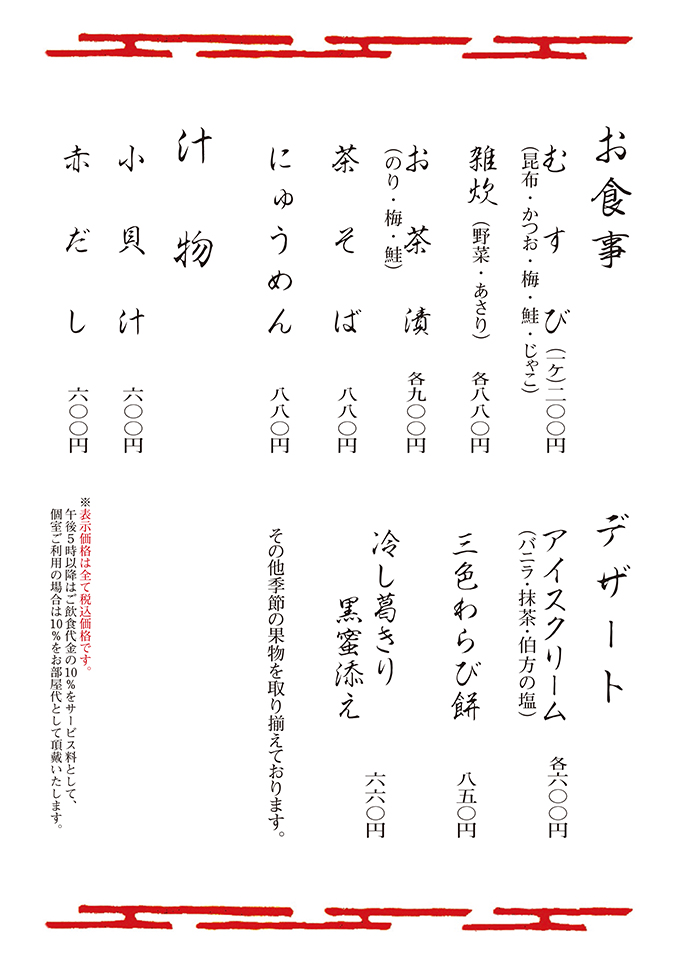 お食事
むすび(一ケ)二〇〇円
(昆布・かつお・梅・鮭・じゃこ)
雑炊(野菜・あさり)各八八〇円
お茶漬 各九〇〇円
(のり・梅・鮭)
茶そば 八八〇円
にゅうめん 八八〇円
汁物
小貝汁 六〇〇円
赤だし 六〇〇円
デザート
アイスクリーム 各六〇〇円
(バニラ・抹茶・伯方の塩)
三色わらび餅 八五〇円
冷し葛きり
黒蜜添え 六六〇円
その他季節の果物を取り揃えております。
※表示価格は全て税込価格です。
午後5時以降はご飲食代金の10%をサービス料として、
個室ご利用の場合は10%をお部屋代として頂戴いたします。